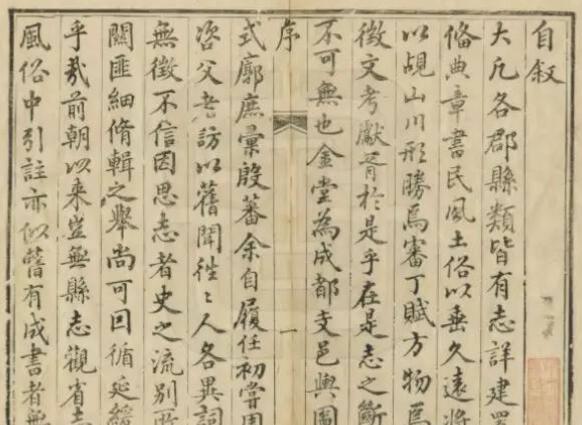 自叙
大凡各郡縣類皆有志詳建置
俻典章書民風土俗以垂久遠將
以覘山川形勝焉審丁賦方物焉
徵文考獻胥於是乎在是志之斷
不可無也金堂為成都支邑輿圖
序
一
式廓庶彙殷蕃余自履任初嘗周
咨父老訪以舊聞徃〻人各異詞
無徵不信因思志者史之流別所
關匪細脩輯之舉尚可回循延緩
乎㢤前朝以来豈無縣志觀省志
風俗中引註亦似舊有成書者無